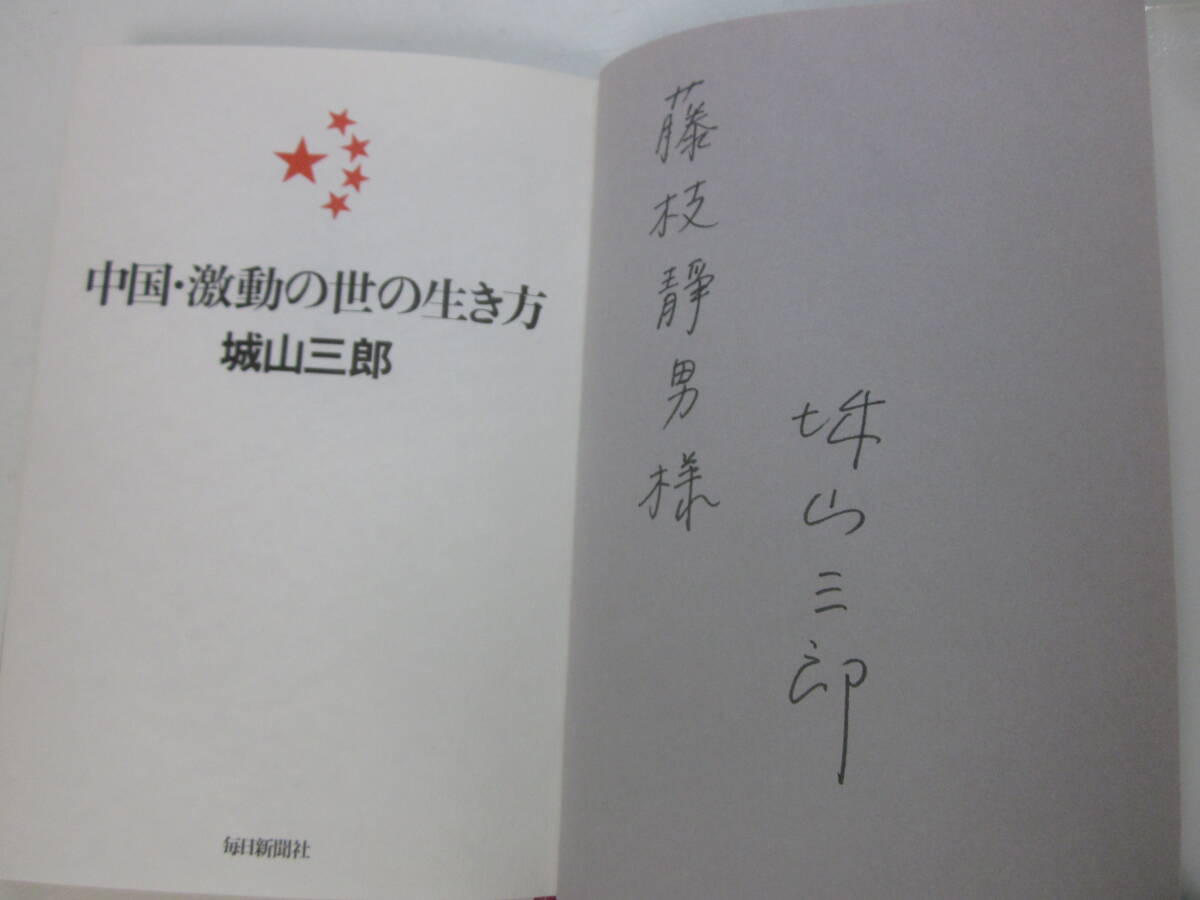 中国・激動の世の生き方
城山三郎
毎日新聞社
藤枝靜男様
城山三郎